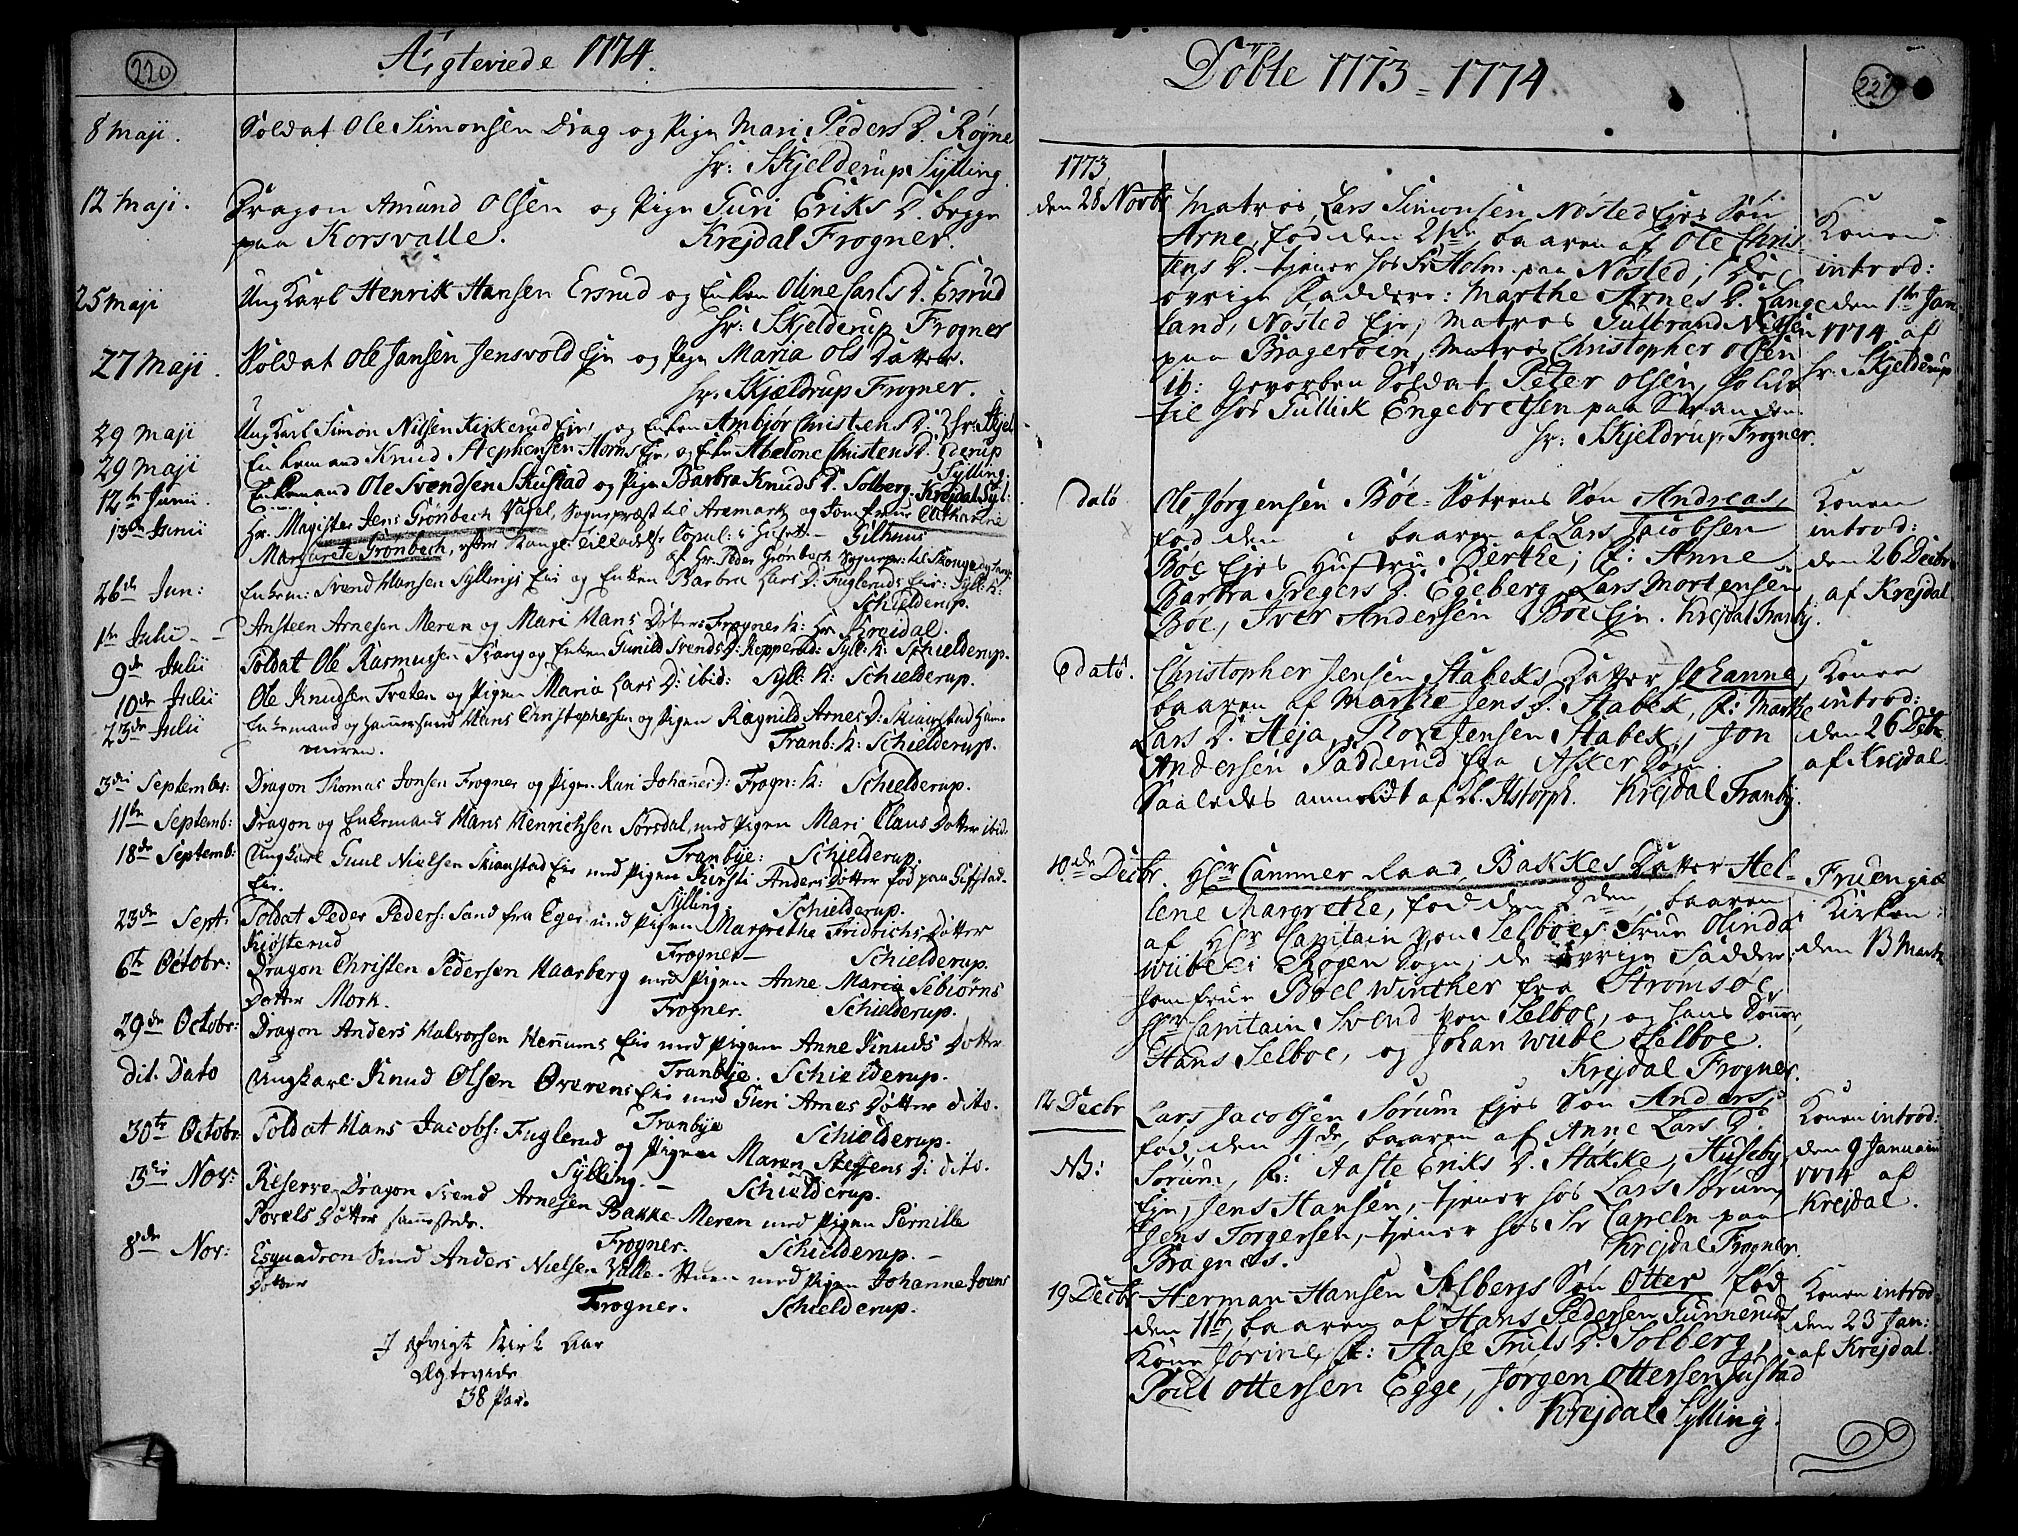 220
Ægteviede 1774.
8 Maji. Soldat Ole Simonsen Drag og Pige Mari Peders D. Røyne
Hr: Skjelderup Sylling.
12 Maji. Dragon Amund Olsen og Pige Guri Eriks D. begge
paa Korsvalle. Krejdal Frogner.
25 Maji Ung Karl Henrik Hansen Ersrud og Enken Oline Carls D. Ersrud
Hr: Skjelderup Frogner
27 Maji. Soldat Ole Jansen Jensvold Eje og Pige Maria Ols Datter.
Hr: Skjeldrup Frogner.
29 Maji Ung Karl Simon Nilsen Kirkerud Eje, og Enken Ambjør Christens D. Hr: Skjel-
29 Maji Enkemand Knud Stephensen Horns Eje, og Enke Abelone Christens D. derup
Sylling:
12te Junii Enkemand Ole Svendsen Skustad og Pige Barbra Knuds D. Solberg. Krejdal Syl:
13de Junii Hr. Magister Jens Grønbech Sognepræst til Aremark og Jomfrue Catharine
Margarete Grønbech, efter Kongel: Tilladelse Copul: i Huset - Gilhuus
af Hr. Peder Grønbech Sognepr: til
26de Jun: Enkem: Svend Hansen Syllings Eie og Enken Barbra Lars D: Fuglerud Eie: Syll: K:
Schielderup.
1te Julii - - Ansteen Arnesen Meren og Mari Hans Dotter Frogner K: Hr. Kreidal.
9de Julii Soldat Ole Rasmussen og Enken Gunild Svends D: Syll: K: Schielderup.
10de Julii Ole Knudsen Tveten og Pigen Maria Lars D: ibid: Syll: K: Schielderup.
23de Julii Enkemand og Hans Christophersen og Pigen Ragnild Arnes D: Skiærstad
Tranb: K: Schielderup.
3die September: Dragon Thomas Jonsen Frogner og Pigen Kari Johannes D: Frogn: K: Schielderup.
11te Septemb: Dragon og Enkemand Hans Henrichsen Sørsdal, med Pigen Mari Claus Dotter ibid.
Tranbye: Schielderup.
18de Septemb: Ungkarl Guul Nielsen Skianstad Eie med Pigen Kiersti Anders Dotter fød paa Gifstad-
Eie. Sylling. Schielderup.
23de Sept: Soldat Peder Peders: Sand fra Eger med Pigen Margrethe Fridrichs Dotter
Kiøsterud Frogner - Schielderup.
6te Octobr: Dragon Christen Pedersen Haarberg med Pigen Anne Maria Sebiørns
Dotter Mork. Frogner. Schielderup.
29de Octobr: Dragon Anders Halvorsen Hennums Eie med Pigen Anne Knuds Dotter
Tranbye. Schielderup.
dit. Dato Ungkarl Knud Olsen Overens Eie med Guri Arnes Dotter dito.
Tranbye Schielderup.
30te Octobr Soldat Hans Jacobs: Fuglerud og Pigen Maren Steffens D: dito.
Sylling. - Schielderup.
3die Nov: Reserve Dragon Svend Arnesen Bakke-Meren med Pigen Pernille
Povels Dotter sammestede. Frogner. Schielderup. -
8de Nov: Esquadron Smed Anders Nielsen Valle-Stuen med Pigen Johanne Jouns
Dotter Frogner. Schielderup.
I afvigt Kirke Aar
Ægteviede
38 Par.
221
Døbte 1773 = 1774
1773
den 28 Novbr Matros Lars Simonsen Nøsted Ejes Søn
Arne, fød den 21de, baaren af Ole Chris-
tens D. tjener hos Sr Holm paa Nøsted; De
øvrige Faddere: Marthe Arnes D. Lange
land, Nøsted Eje, Matros Gulbrand Nilsen
paa Bragerøen, Matros Christopher Olsen
ib: Gevorben Soldat Peter Olsen, holder
til hos Tullik Engebretsen paa Stranden
Hr: Skjeldrup Frogner.
Konen
introd:
den 1te Jan.
1774 af
Hr: Skjelderup
Dato Ole Jørgensen Bøe-Sætrens Søn Andreas,
fød den baaren af Lars Jacobsen
Bøe Ejes Hustru Berthe; F: Anne
Barbra Gregers D. Egeberg, Lars Mortensen
Bøe, Iver Andersen Bøe Eje. Krejdal Tranby.
Konen
introd:
den 26 Decbr
af Krejdal
Dato. Christopher Jensen Stabeks Datter Johanne,
baaren af Marthe Jens D. Stabek, F: Marthe
Lars D. Heja, Tore Jensen Stabek, Jon
Andersen Padderud fra Asker Sogn.
Saaledes anmeldt af Kl. Astorph. Krejdal Tranby.
Konen
introd:
den 26 Decbr
af Krejdal.
10de Decbr. Hr Cammer Raad Bakkes Datter Hel-
lene Margrethe, fød den 2den, baaren
af Hr Capitain von Selboes Frue Olinda
Wibe i Røgen Sogn, de øvrige Fadder:
Jomfrue Boel Winther fra Strømsøe,
Hr Capitain Svend von Selboe, og hans Sønner,
Hans Selboe, og Johan Wibe Selboe.
Krejdal Frogner.
Fruen gik
i Kirken
den 13 Martz
12 Decbr Lars Jacobsen Sørum Ejes Søn Anders,
fød den 4de, baaren af Anne Lars D.
NB: Sørum, F: Aaste Eriks D. Stakke, Huseby
Eje, Jens Hansen, tjener hos Lars Sørum,
Jens Torgersen, tjener hos Sr Capeln paa
Bragnæs. Krejdal Frogner.
Konen introd:
den 9 Januarii
1774 af
Krejdal.
19 Decbr Herman Hansen Solbergs Søn Otter fød
den 11te, baaren af Hans Pedersen Gunneruds
Kone Jorine, F: Aase Truls D. Solberg,
Poul Ottersen Egge, Jørgen Ottersen Justad
Krejdal Sylling.
Konen introd.
den 23 Jan:
af Krejdal.